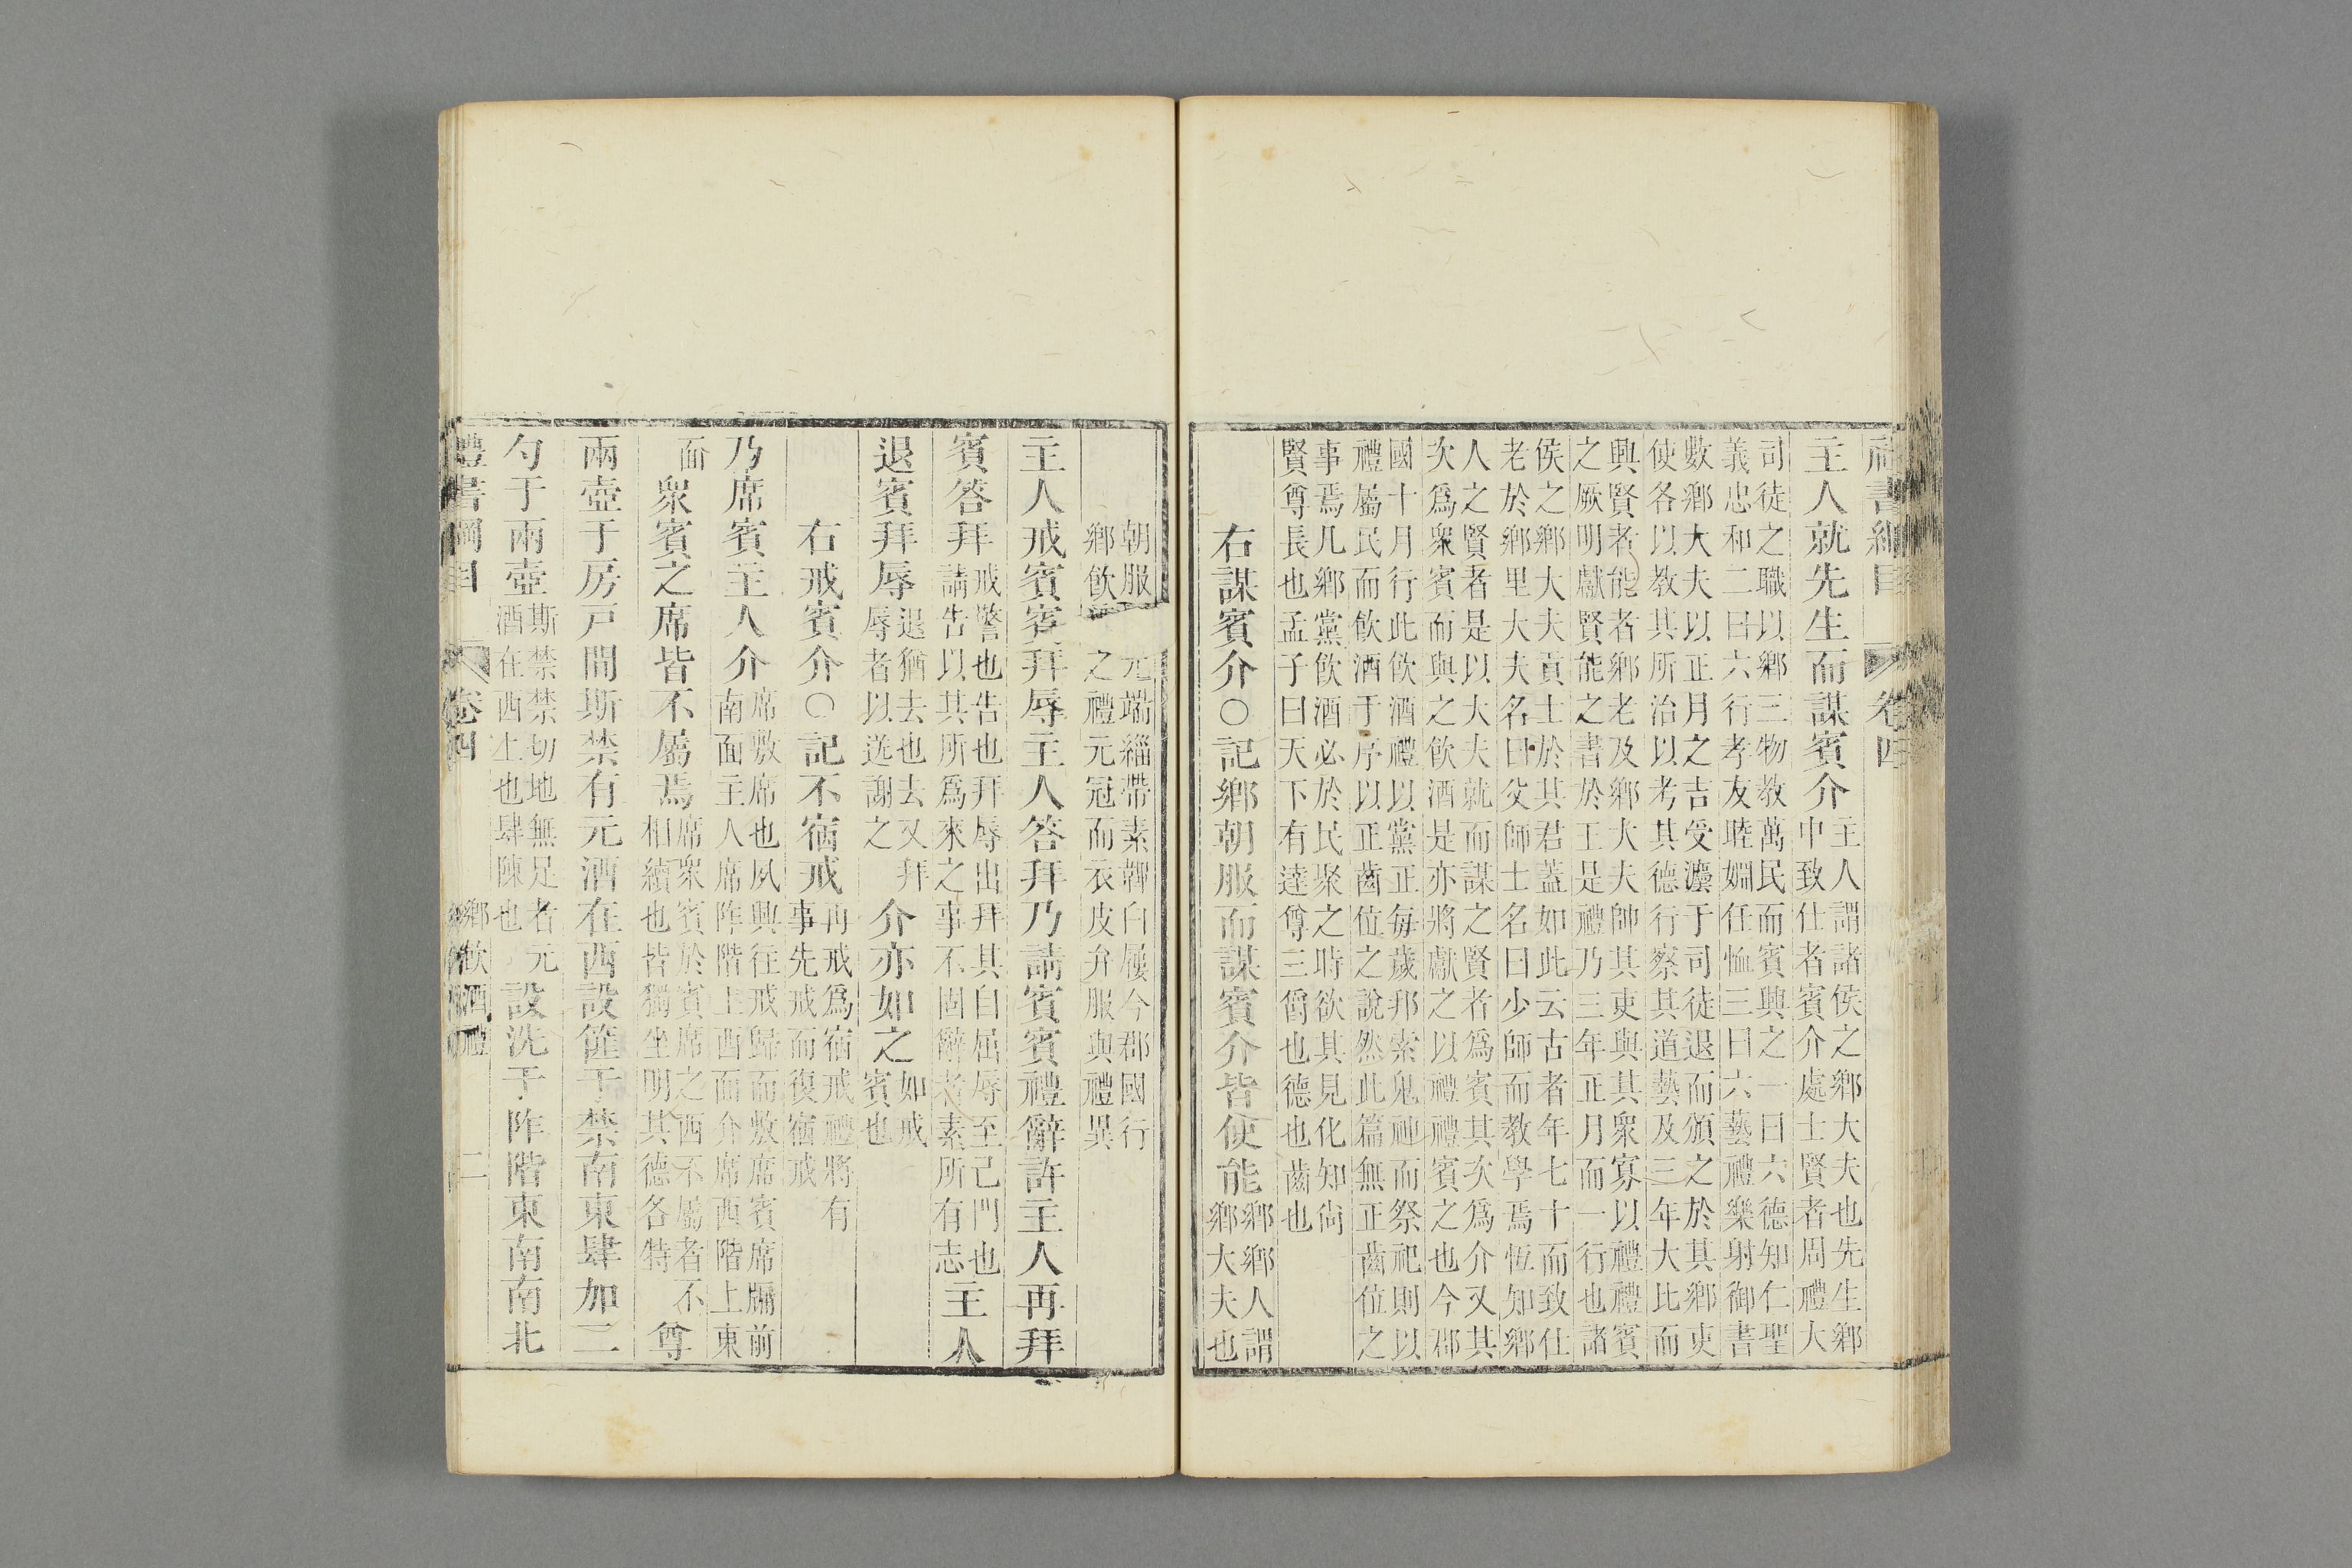 禮書綱目 卷四
主人就先生而謀賓介主人謂諸侯之鄉大夫也先生鄉中致仕者賓介處士賢者周禮大
司徒之職以鄉三物教萬民而賓興之一曰六德知仁聖義忠和二曰六行孝友睦婣任恤三曰六藝禮樂射御書
數鄉大夫以正月之吉受灋于司徒退而頒之於其鄉吏使各以教其所治以考其德行察其道藝及三年大比而
興賢者能者鄉老及鄉大夫帥其吏與其衆寡以禮禮賓之厥明獻賢能之書於王是禮乃三年正月而一行也諸
侯之鄉大夫貢士於其君蓋如此云古者年七十而致仕老於鄉里大夫名曰父師士名曰少師而教學焉恆知鄉
人之賢者是以大夫就而謀之賢者爲賓其次爲介又其次爲衆賓而與之飲酒是亦將獻之以禮禮賓之也今郡
國十月行此飲酒禮以黨正每歲邦索鬼神而祭祀則以禮屬民而飲酒于序以正齒位之說然此篇無正齒位之
事焉凡鄉黨飲酒必於民聚之時欲其見化知尚賢尊長也孟子曰天下有達尊三爵也德也齒也
右謀賓介○記鄉朝服而謀賓介皆使能鄉鄉人謂鄉大夫也
朝服 元端緇帶素韠白屨今郡國行鄉飲 之禮元冠而衣皮弁服與禮異
主人戒賓賓拜辱主人答拜乃請賓賓禮辭許主人再拜
賓答拜戒警也告也拜辱出拜其自屈辱至己門也請告以其所爲來之事不固辭者素所有志主人
退賓拜辱退猶去也去又拜辱者以送謝之介亦如之如戒賓也
右戒賓介○記不宿戒再戒爲宿戒禮將有事先戒而復宿戒
乃席賓主人介席敷席也夙興往戒歸而敷席賓席牖前南面主人席阼階上西面介席西階上東
面衆賓之席皆不屬焉席衆賓於賓席之西不屬者不相續也皆獨坐明其德各特尊
兩壺于房戶間斯禁有元酒在西設篚于禁南東肆加二
勺于兩壺斯禁禁切地無足者元酒在西上也肆陳也設洗于阼階東南南北
禮書綱目 卷四 鄉飲酒禮 二